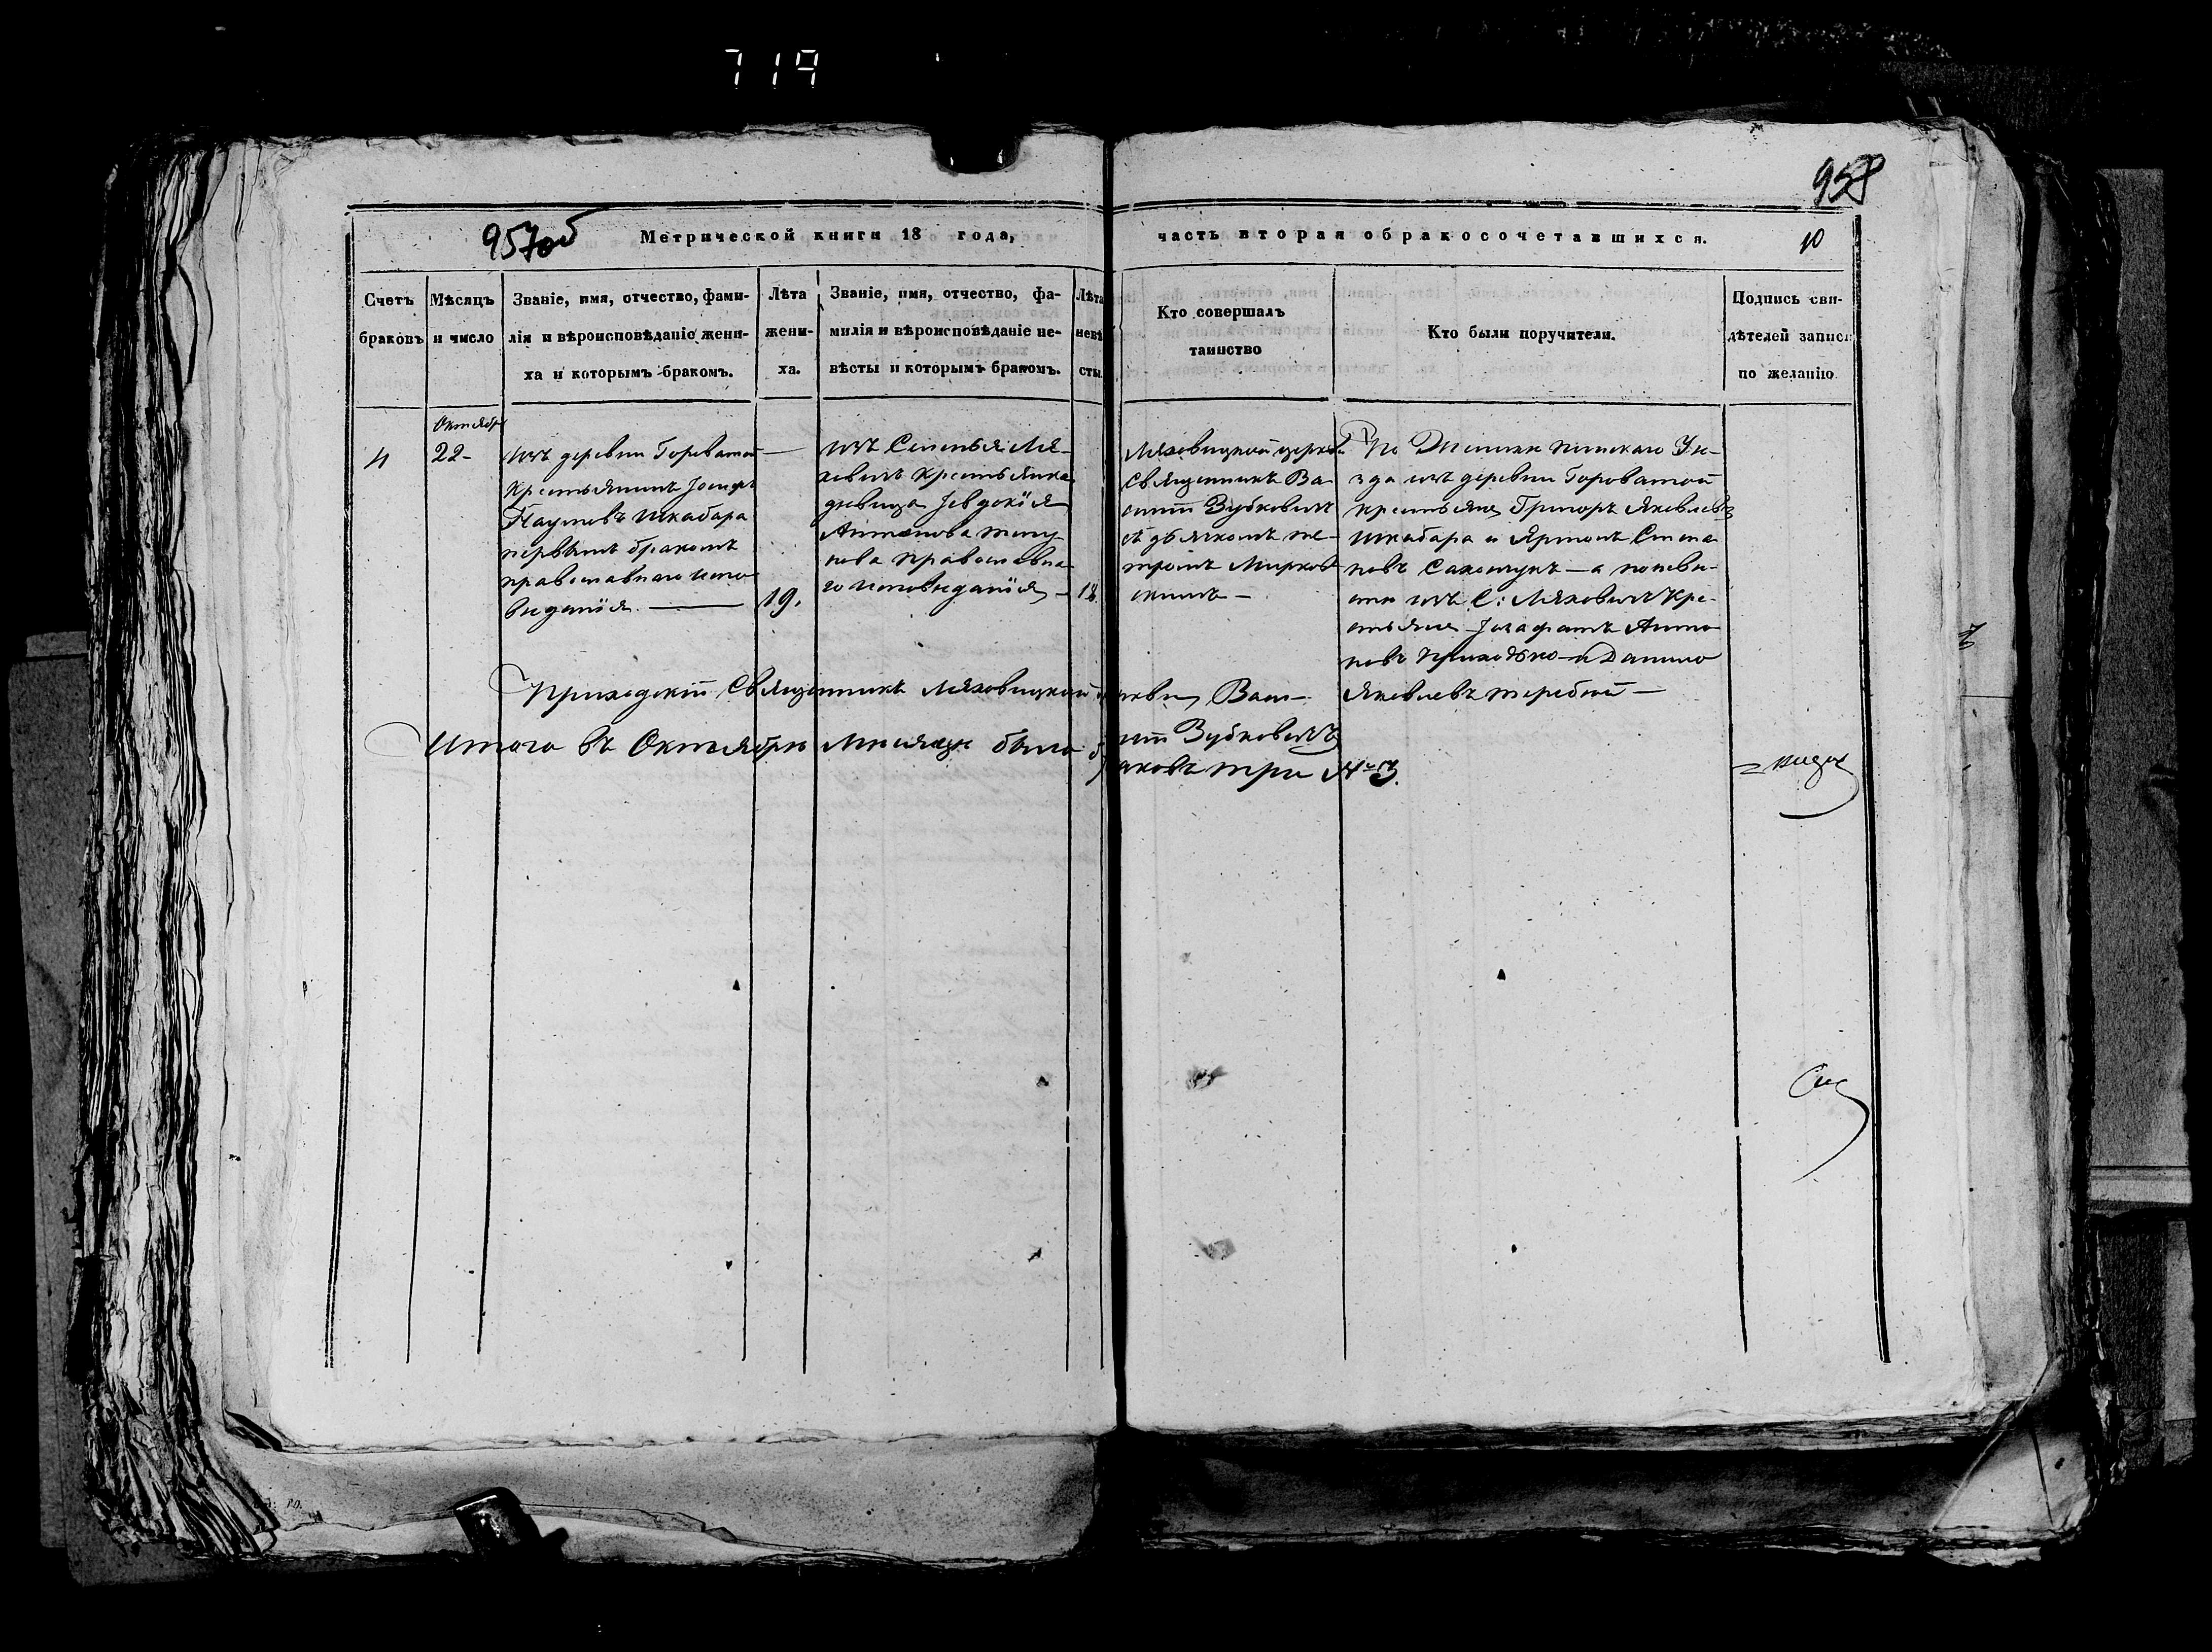 719
958
957об
Метрической книги 18 года, часть вторая о бракосочетавшихся.
10
Счетъ
браковъ
Мѣсяцъ
и число
Званіе, имя, отчество, фами-
лія и вѣроисповѣданіе жени-
ха и которымъ бракомъ.
Лѣта
жени-
ха.
Званіе, имя, отчество, фа-
милія и вѣроисповѣданіе не-
вѣсты и которымъ бракомъ.
Лѣта
невѣ
сты.
Кто совершалъ
таинство
Кто были поручители.
Подпись сви-
дѣтелей записи
по желанію
4
Октября
22-
изъ деревни Гороватой
Крестьянинъ Іосифъ
Наумовъ Шкабара
первымъ бракомъ
православнаго испо
веданія
19.
изъ Ля-
ховичъ Крестьянка
девица Іевдокія
Антонова
нова православна
го исповеданія
18
Ляховицкой церкви
Священникъ Ва
силій Зубковичъ
съ дьячкомъ Пе-
тромъ Мирков
скимъ -
По Пинскаго Уе-
зда изъ деревни Гороватой
крестьяне Григоръ Яковлевъ
Шкабара и Степа
новъ - а по неве-
сти изъ С: Ляховичъ Кре-
стьяне Іозафатъ Анто
новъ Приходько - и Данило
Яковлевъ Теребей -
Приходскій Священникъ Ляховицкой Васи-
лій Зубковичъ
Итого въ Октябрѣ месяце было браковъ три № 3.